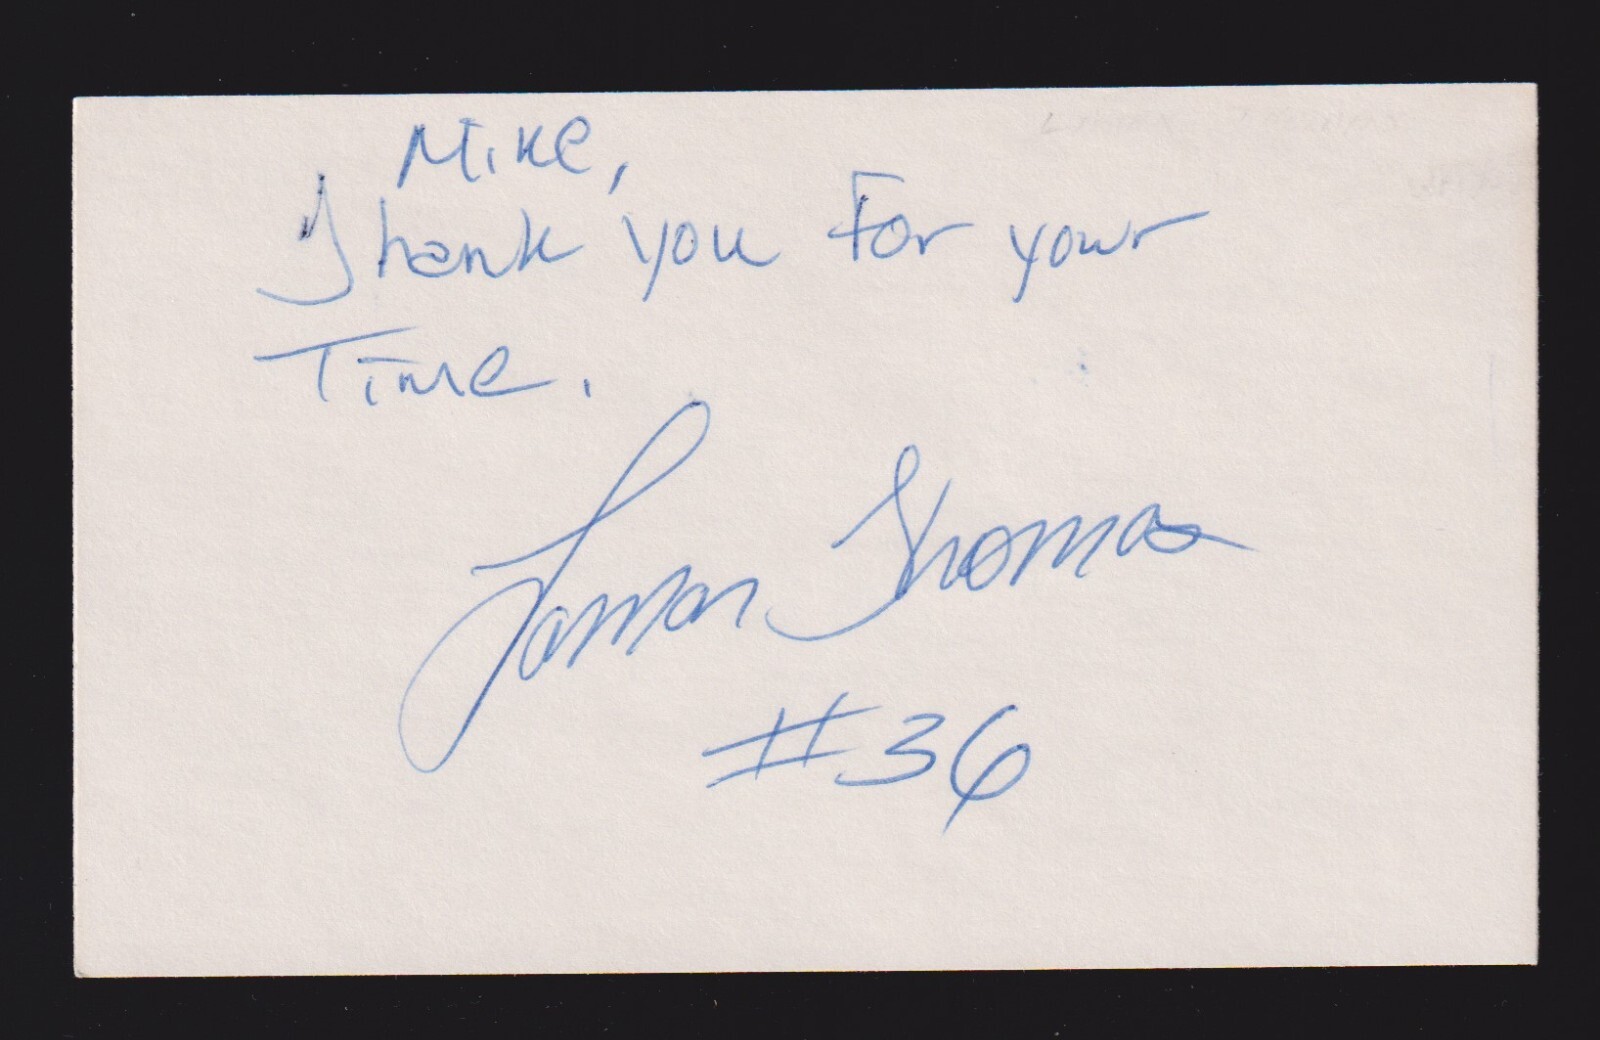 Mike,
Thank you For your
Time.
Lamar Thomas
#36